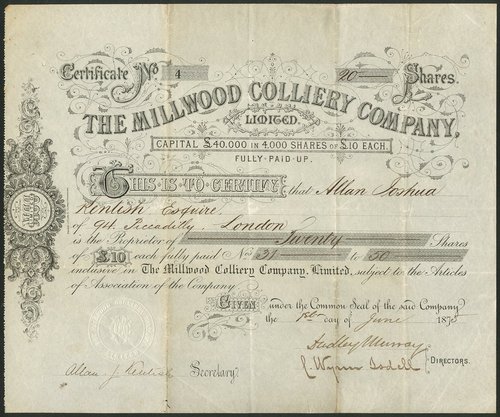 Certificate No 4 20 Shares.
THE MILLWOOD COLLIERY COMPANY,
LIMITED.
CAPITAL £40,000 IN 4,000 SHARES OF £10 EACH.
FULLY-PAID-UP.
THIS IS TO CERTIFY that Allan Joshua
Kentish Esquire
of 94 Piccadilly London
is the Proprietor of Twenty Shares
of £10 each fully paid Nos 31 to 50
inclusive in The Millwood Colliery Company, Limited, subject to the Articles
of Association of the Company
GIVEN under the Common Seal of the said Company
the 1st day of June 1875
Dudley Murray
C. Wynn
DIRECTORS.
Allan J. Kentish Secretary.